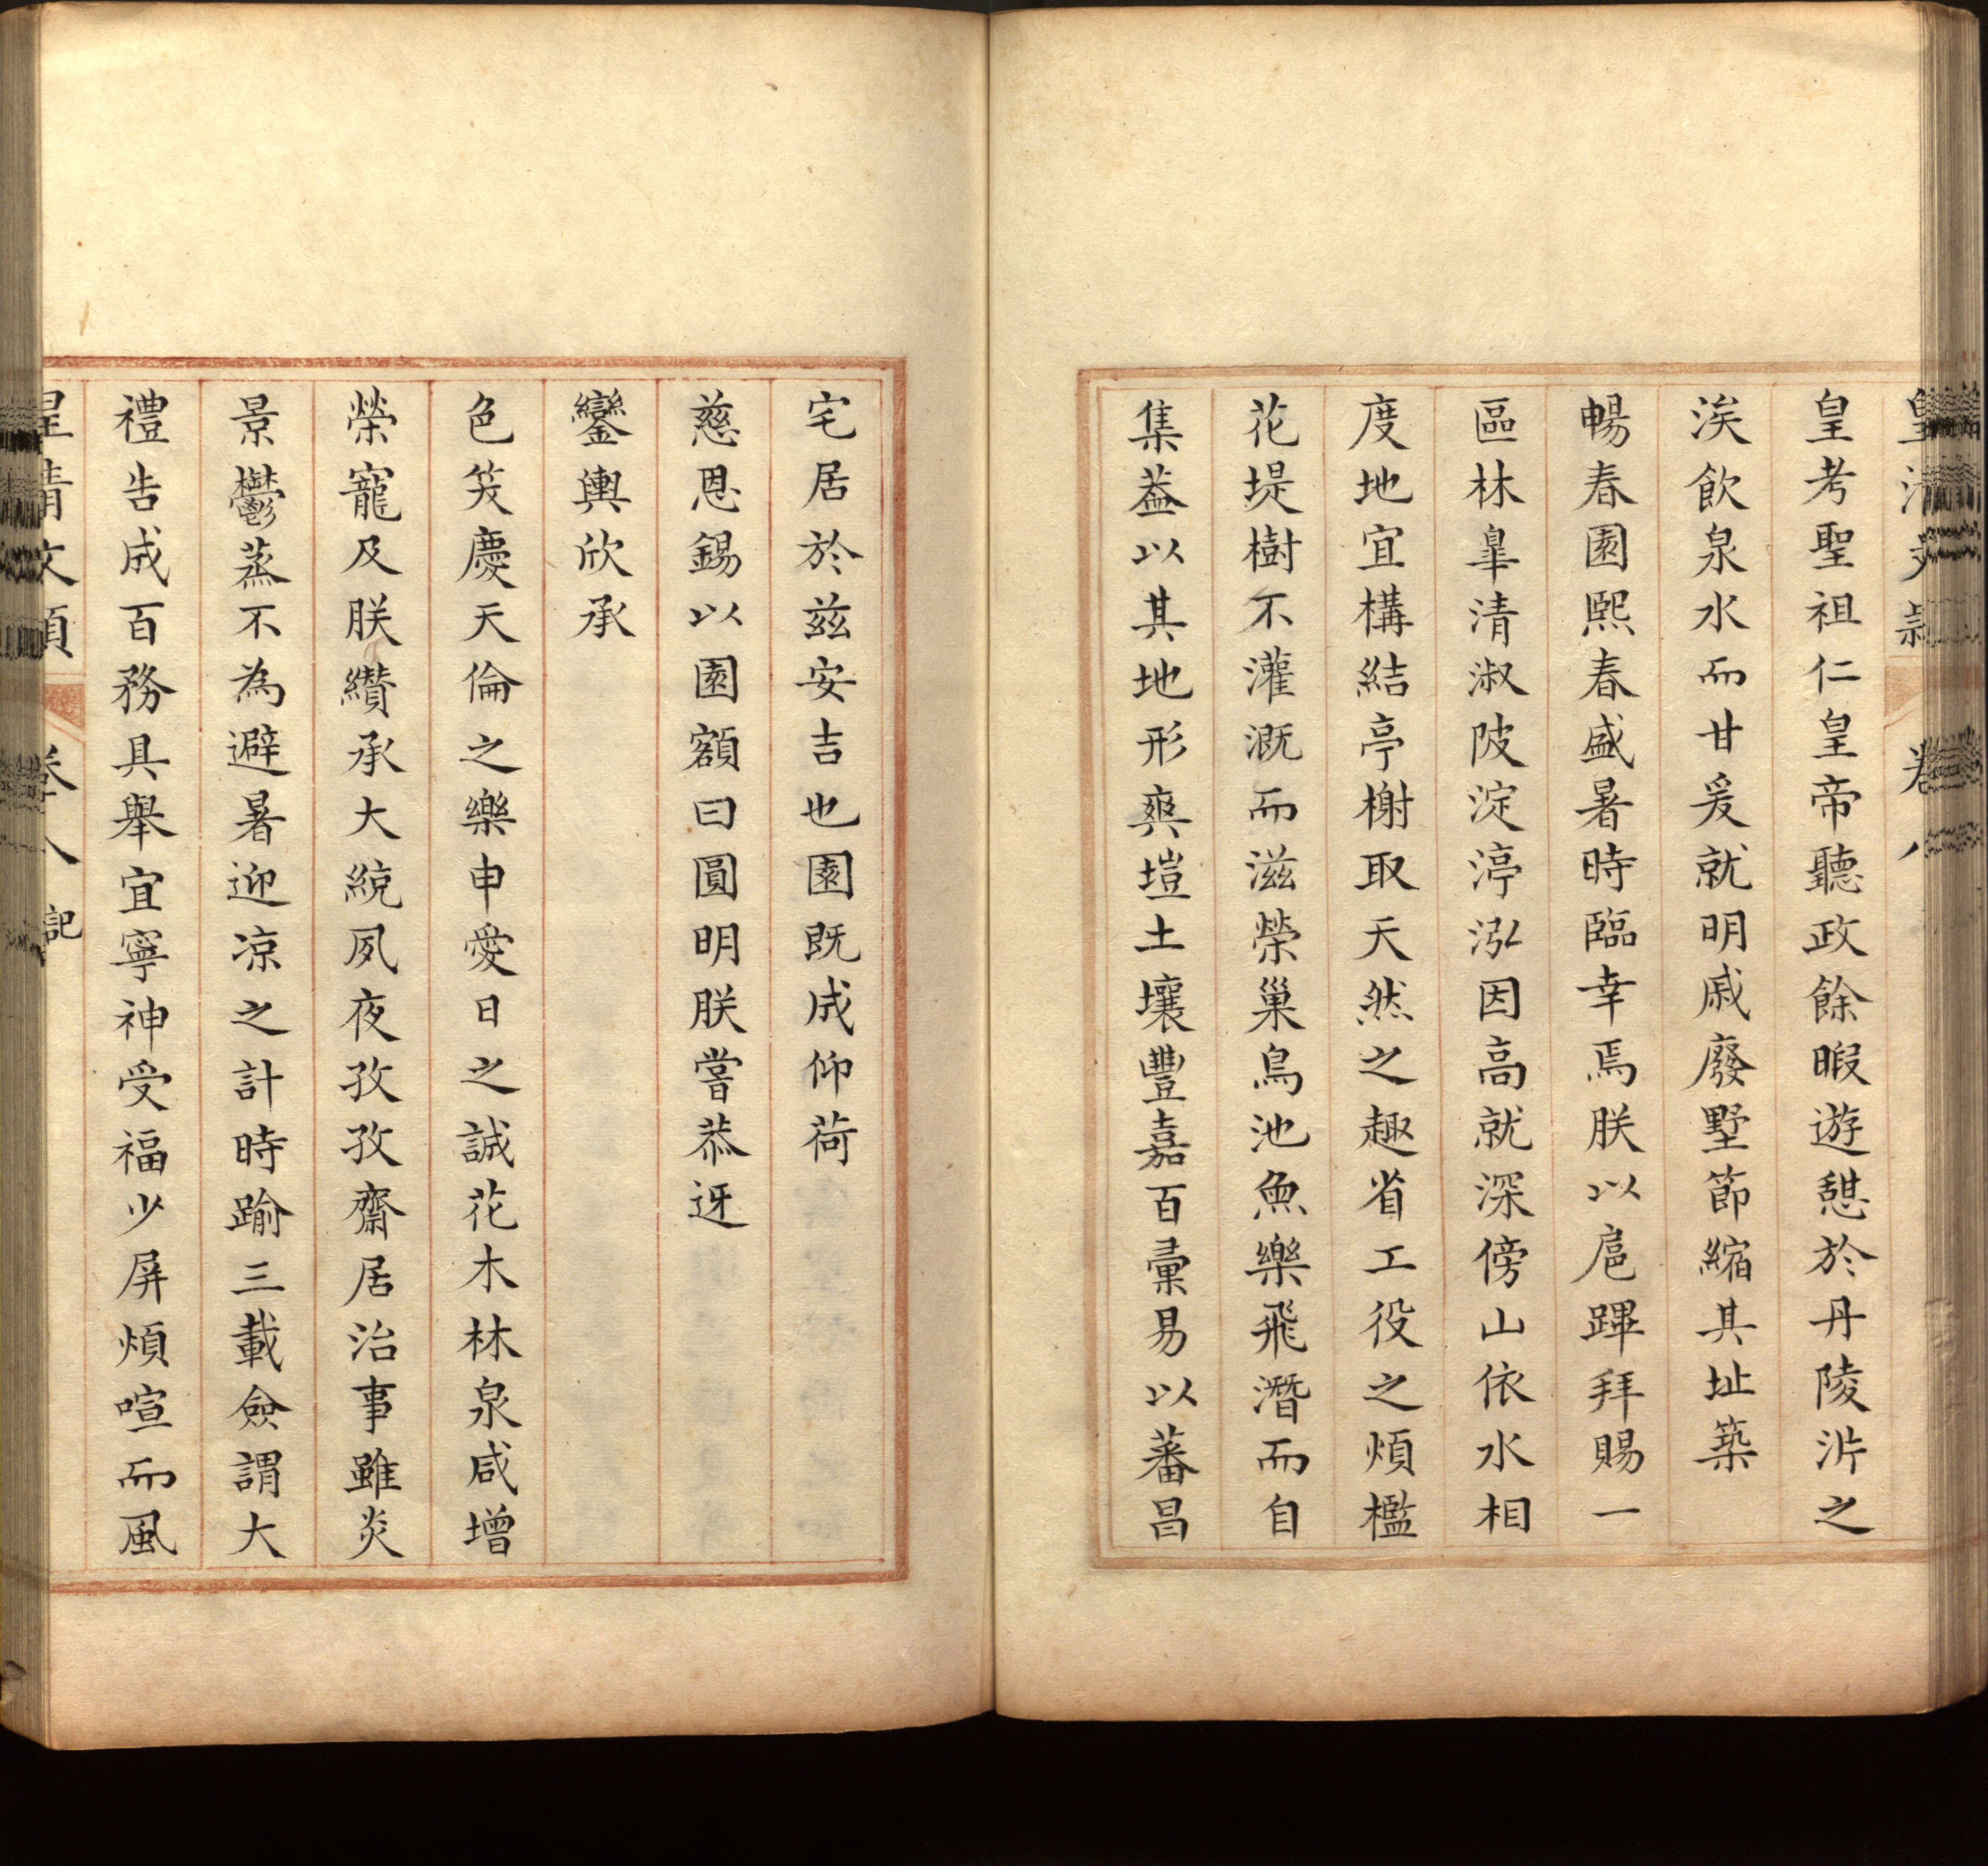 皇清文穎　卷八
皇考聖祖仁皇帝聽政餘暇遊憇於丹陵沜之
涘飲泉水而甘爰就明戚廢墅節縮其址築
暢春園熙春盛暑時臨幸焉朕以扈蹕拜賜一
區林臯清淑陂淀渟泓因高就深傍山依水相
度地宜構結亭榭取天然之趣省工役之煩檻
花堤樹不灌溉而滋榮巢鳥池魚樂飛潛而自
集葢以其地形爽塏土壤豐嘉百彚易以蕃昌
宅居於兹安吉也園既成仰荷
慈恩錫以園額曰圓明朕嘗恭迓
鑾輿欣承
色笑慶天倫之樂申愛日之誠花木林泉咸增
榮寵及朕纘承大統夙夜孜孜齋居治事雖炎
景鬱蒸不為避暑迎凉之計時踰三載僉謂大
禮告成百務具舉宜寧神受福少屏煩喧而風
皇清文穎　卷八記